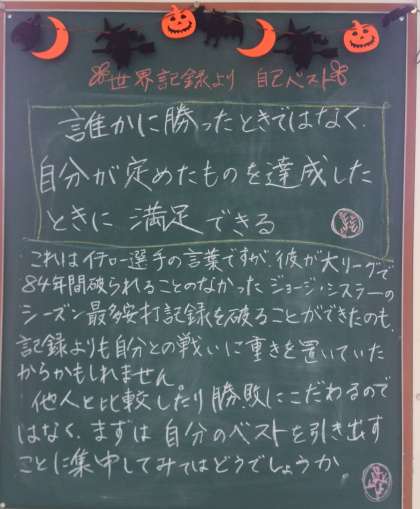 世界記録より 自己ベスト
誰かに勝ったときではなく、
自分が定めたものを達成した
ときに 満足できる
これはイチロー選手の言葉ですが、彼が大リーグで
84年間破られることのなかった ジョージ・シスラーの
シーズン最多安打記録を破ることができたのも、
記録よりも自分との戦いに重きを置いていた
からかもしれません。
他人と比較したり勝敗にこだわるので
はなく、まずは 自分のベストを引き出す
ことに集中してみてはどうでしょうか